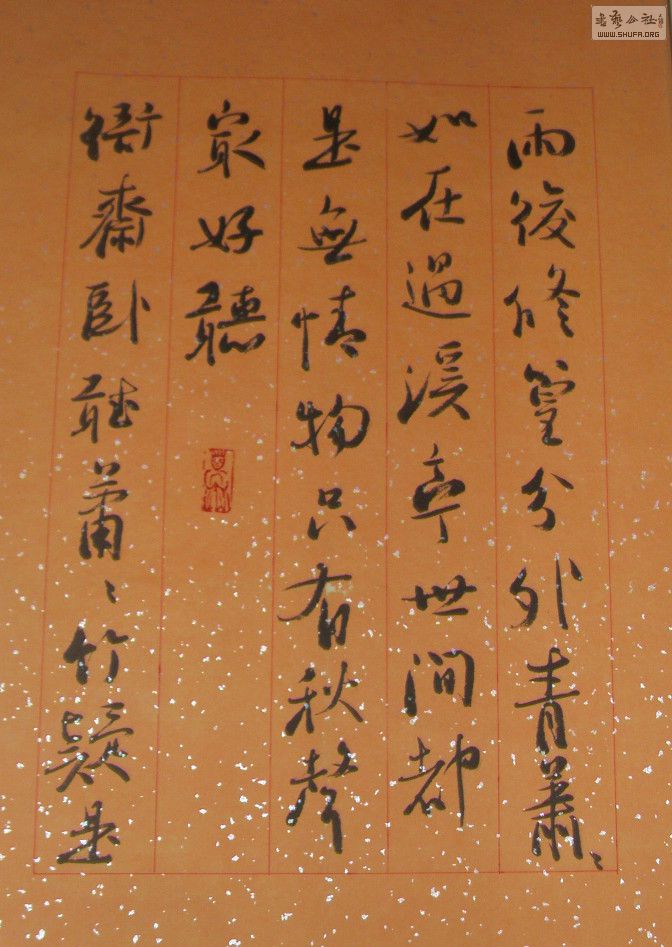 雨後修篁分外青蕭〻
如在過溪亭世間都
是無情物只有秋聲
最好聽
衙齋臥聽蕭〻竹疑是
WWW.SHUFA.ORG